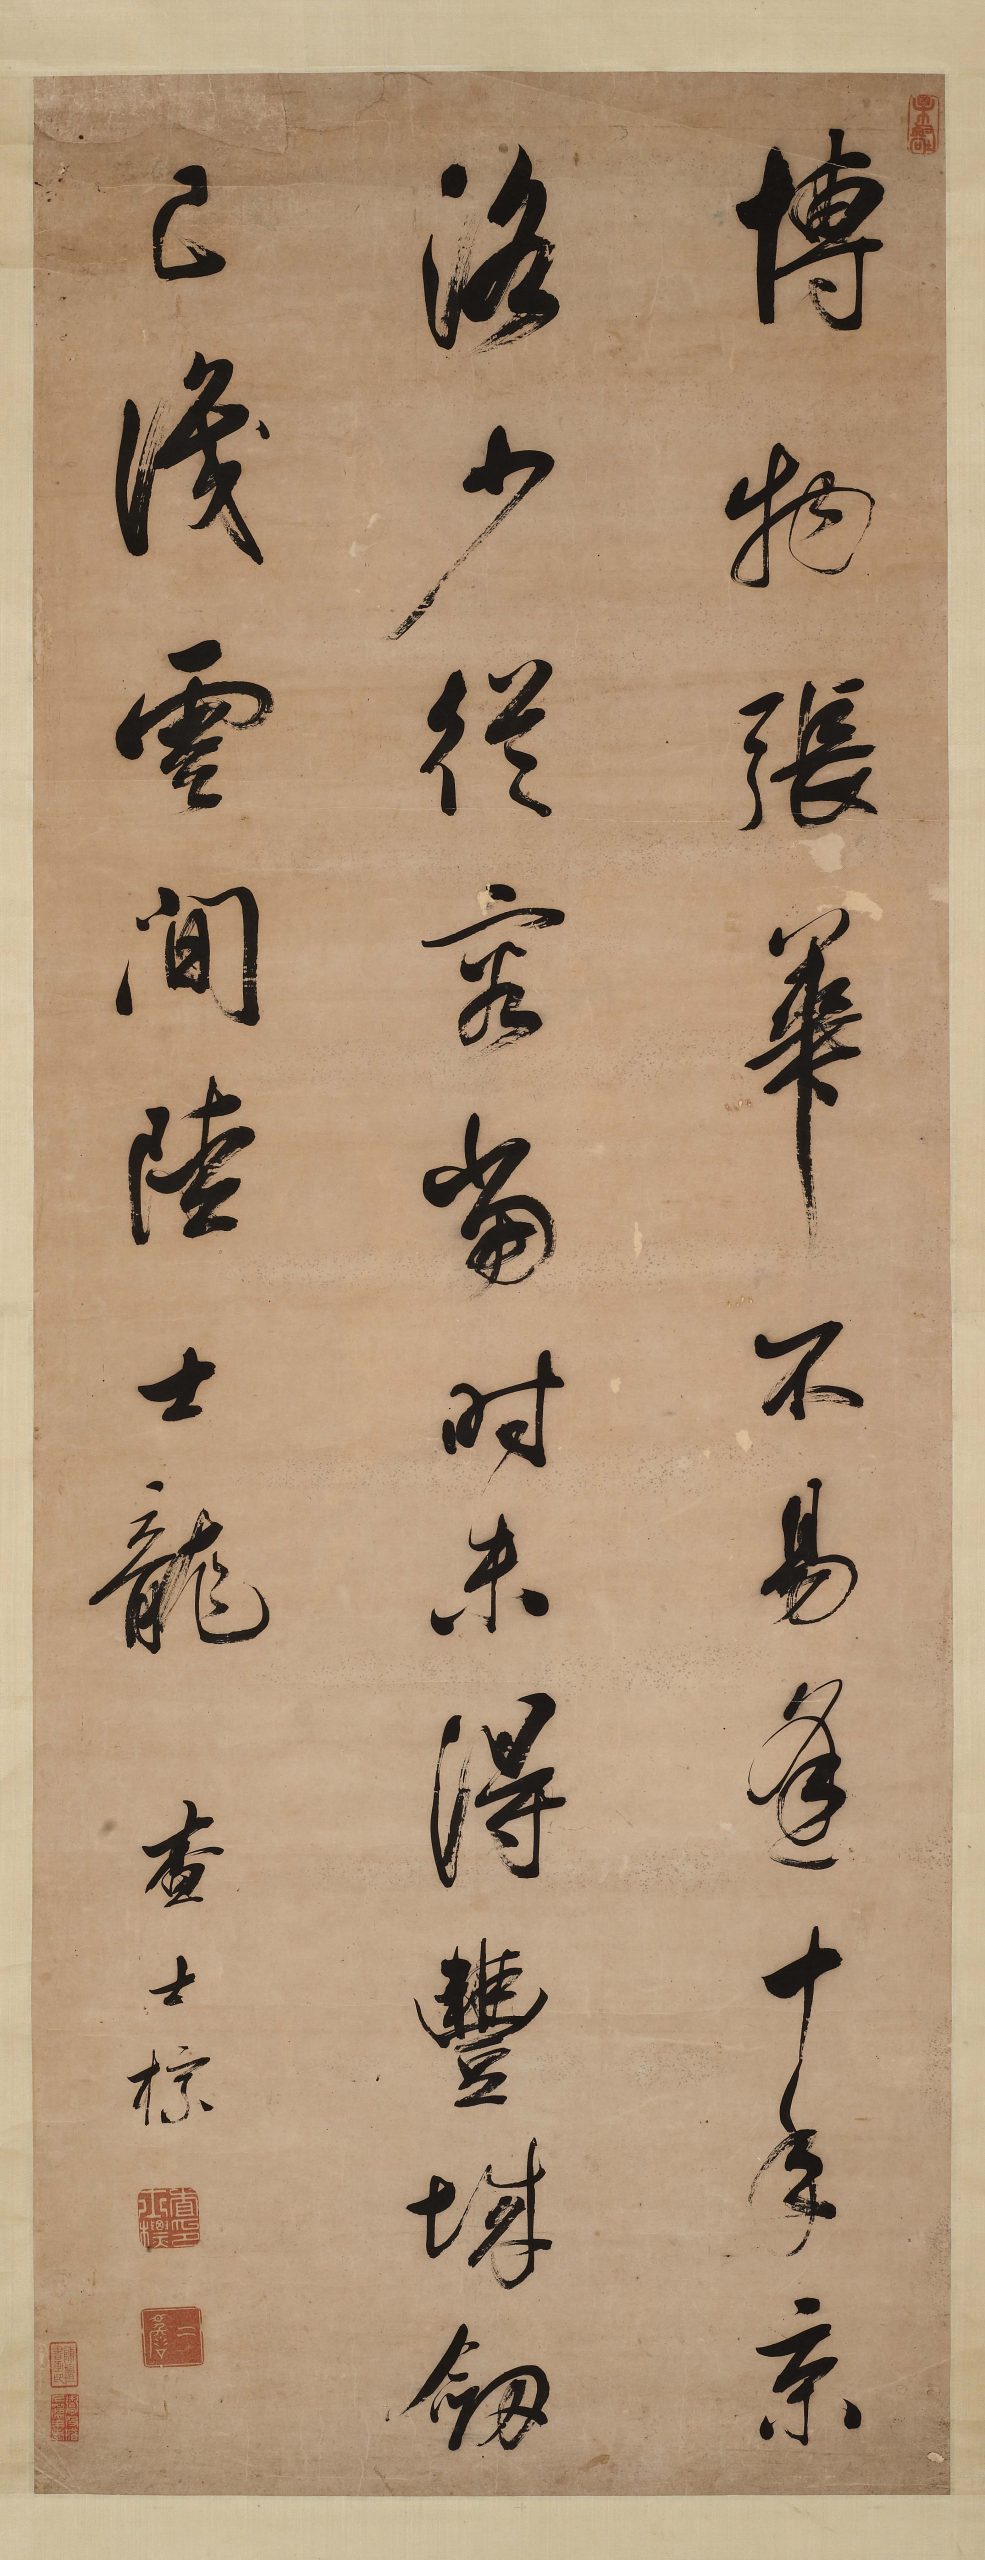 博物張華不易逢十年京
洛少從容當時未得豐城劔
已識雲間陸士龍
查士標
查士標印
二瞻